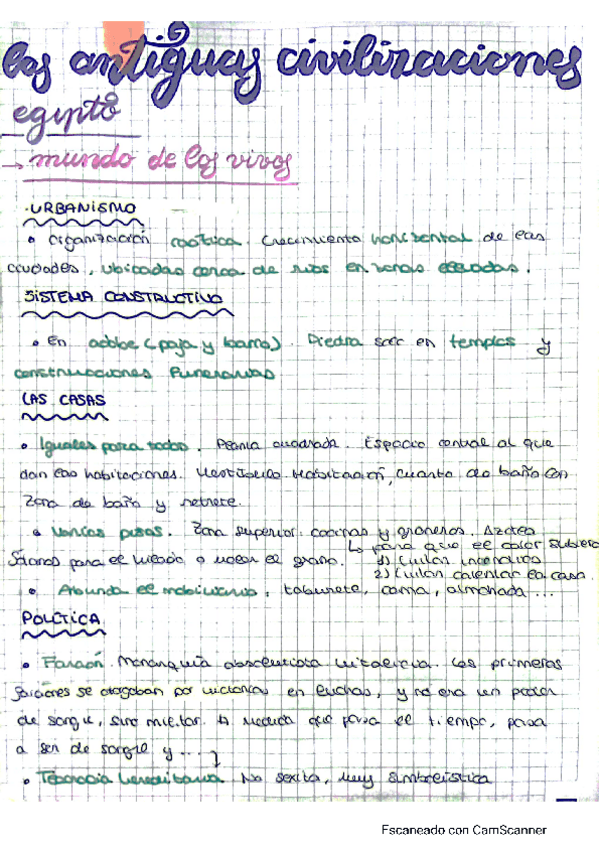 las antiguas civilizaciones
egipto
→ mundo de los vivos
·URBANISMO
• Organización caótica. Crecimiento horizontal de las
ciudades, ubicadas cerca de ríos en zonas elevadas.
SISTEMA CONSTRUCTIVO
• En adobe (paja y barro). Piedra solo en templos y
construcciones funerarias
LAS CASAS
• Iguales para todos. Planta cuadrada. Espacio central al que
dan las habitaciones. Vestíbulo, habitación, cuarto de baño con
zona de baño y retrete.
• Varios pisos. Zona superior: cocinas y graneros. Azotea
↳ para que el calor subiera
Sótanos para el helado o moler el grano. 1) Evitan incendios
2) Evitan calentar la casa.
• Abunda el mobiliario: taburete, cama, almohada...
POLÍTICA
• Faraón. Monarquía absolutista vitalicia. Los primeros
faraones se otorgaban por victorias en luchas, y no era un poder
de sangre, sino militar. A medida que pasa el tiempo, pasa
a ser de sangre y ...
• Teocracia hereditaria. No sexista, muy simbolística
Escaneado con CamScanner